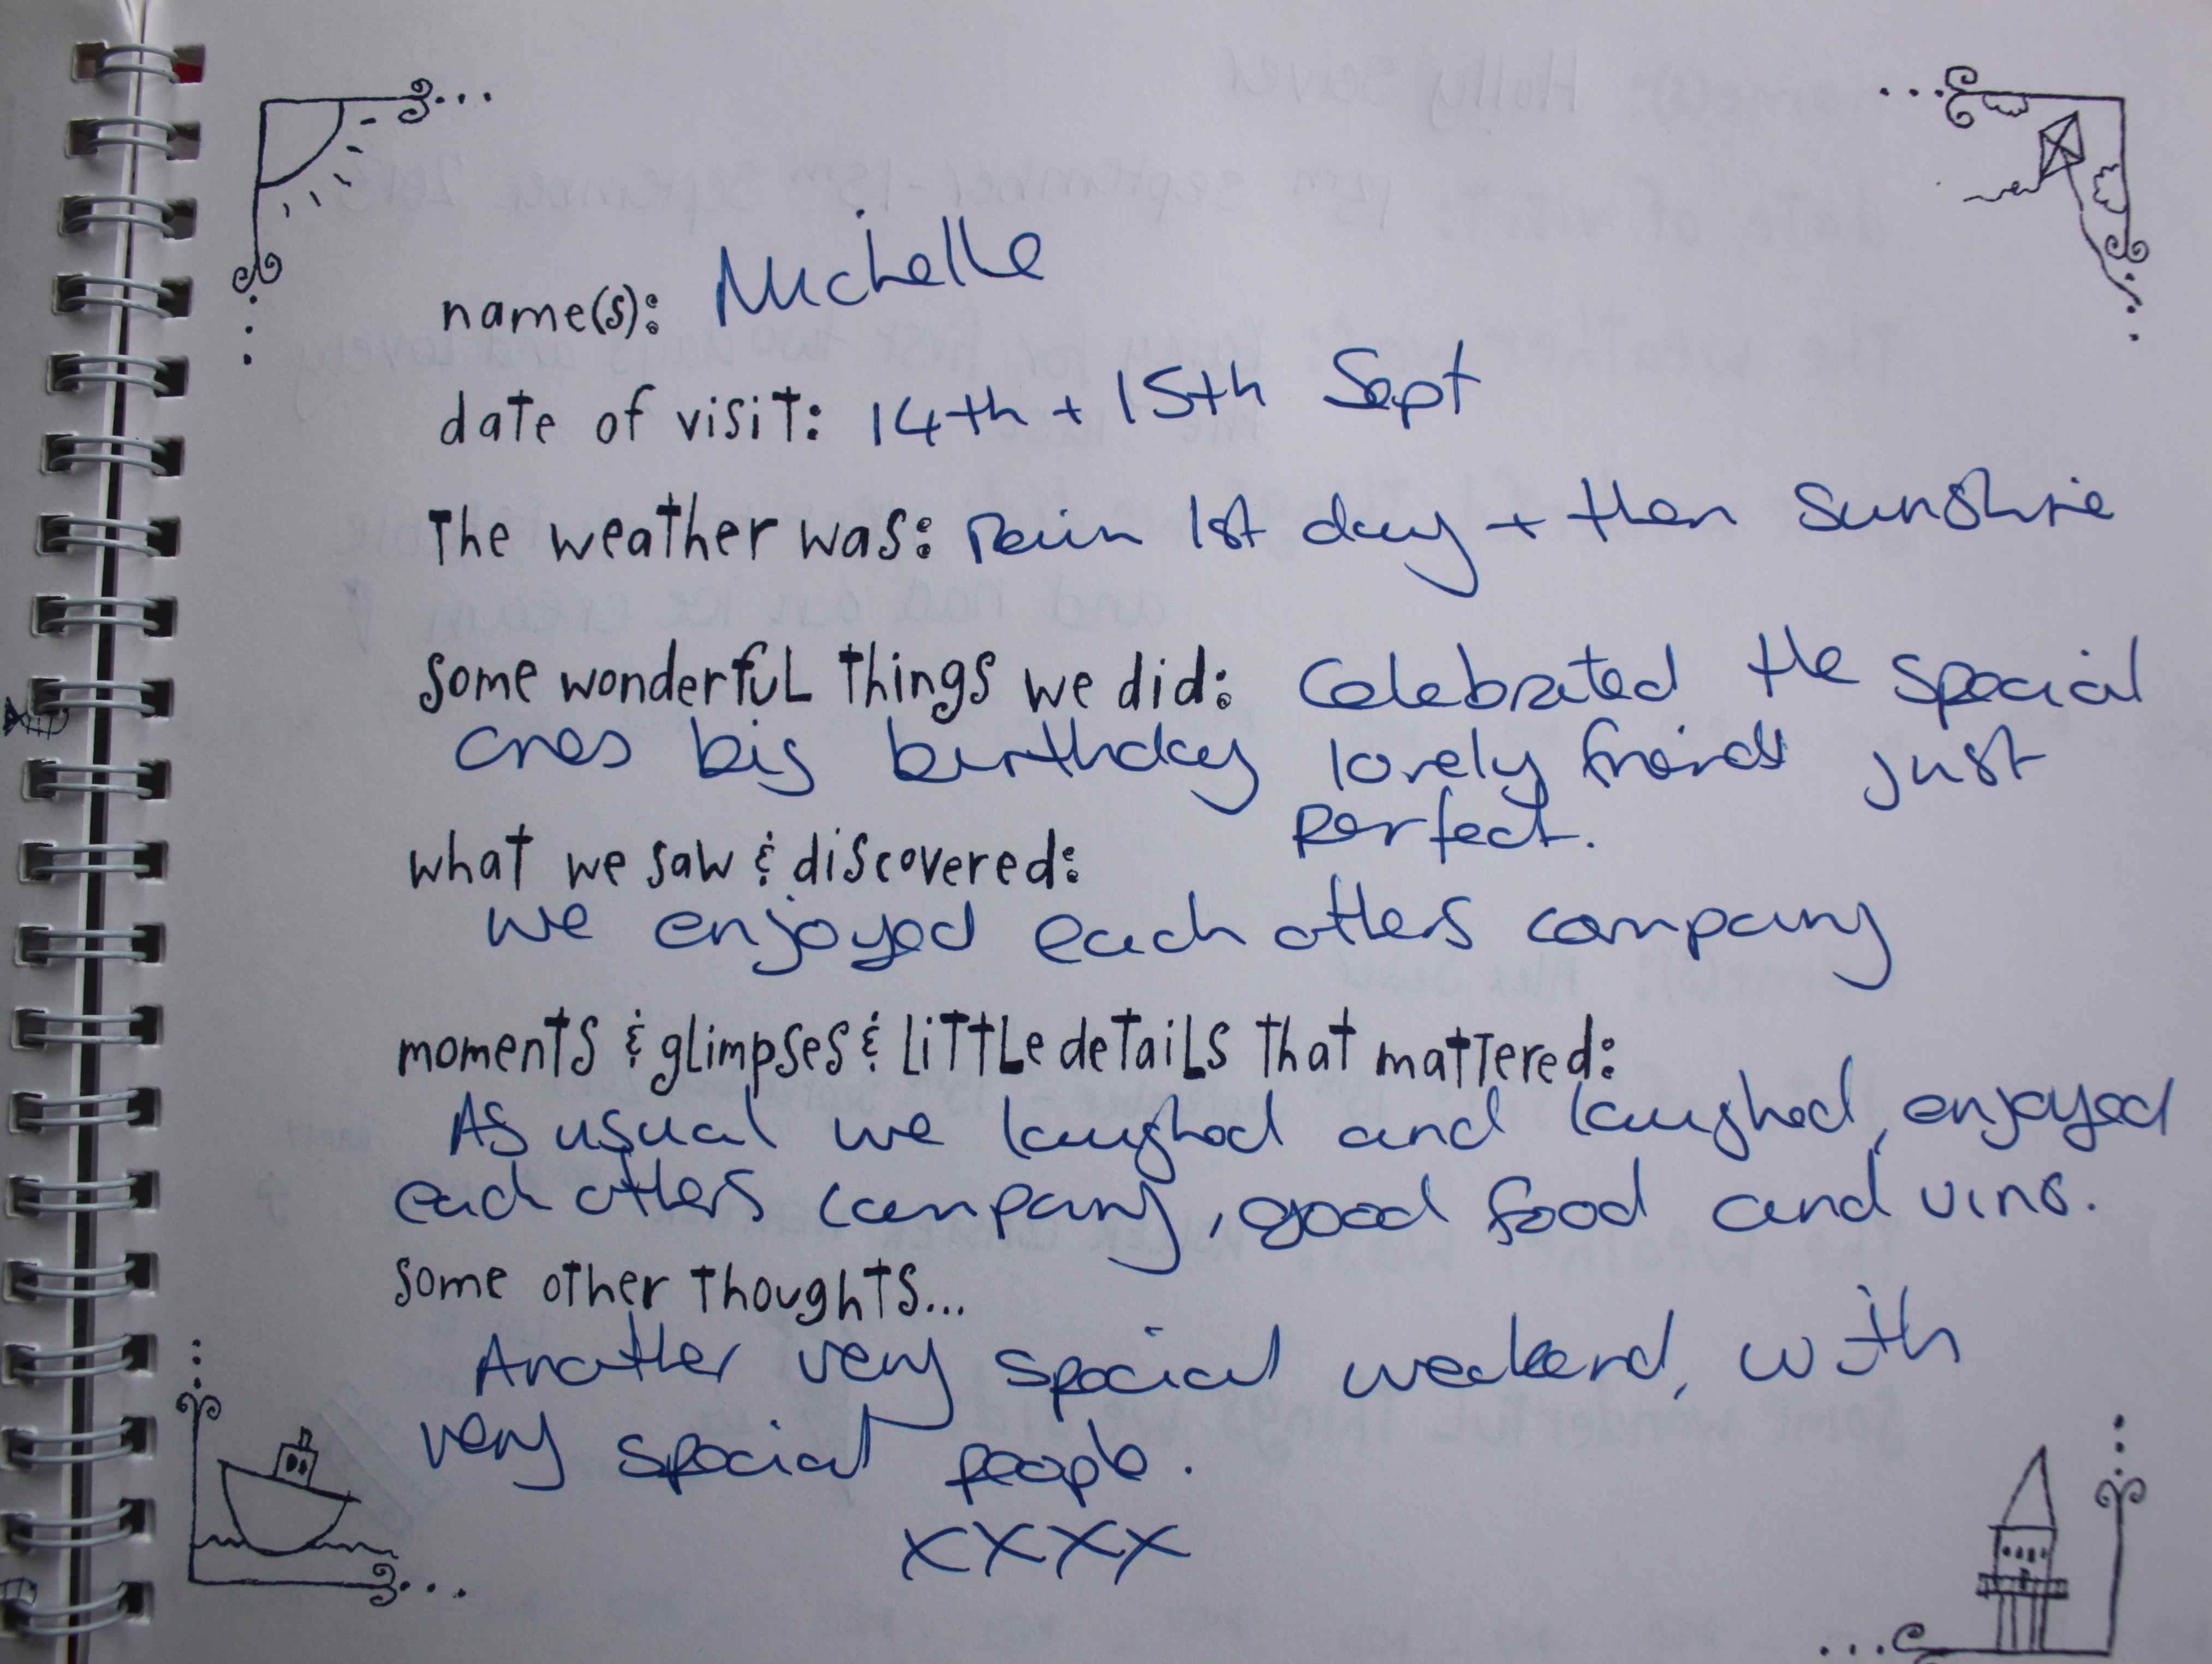 name(s): Michelle
date of visit: 14th + 15th Sept
The weather was: Rain 1st day + then Sunshine
some wonderful things we did: Celebrated the special
ones big birthday lovely friends just
perfect.
what we saw & discovered:
we enjoyed each others company
moments & glimpses & little details that mattered:
As usual we laughed and laughed, enjoyed
each others company, good food and vino.
some other thoughts...
Another very special weekend, with
very special people.
xxxx